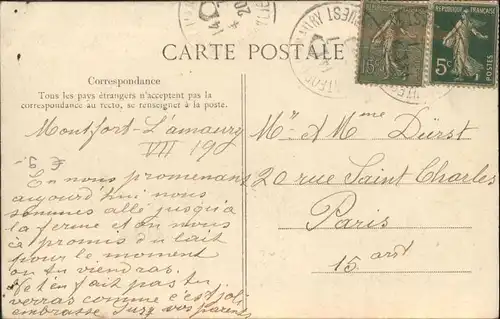 CARTE POSTALE
Correspondance
Tous les pays étrangers n'acceptent pas la
correspondance au recto, se renseigner à la poste.
RÉPUBLIQUE FRANÇAISE
15c
5c
POSTES
Montfort-L'amaury
VII 19
En nous promenant
aujourd'hui nous
sommes allé jusqu'à
la ferme et on nous
a promis du lait
pour le moment
ou tu viendras.
Ne t'en fait pas tu
verras comme c'est joli
embrasse Suzy vos parents
Mr & Mme Dürst
20 rue Saint Charles
Paris
15 ardt